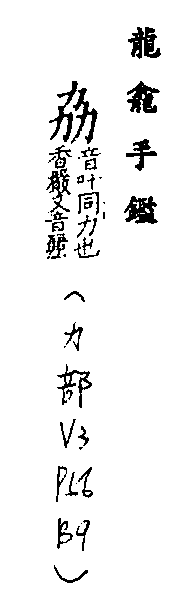 龍龕手鑑
劦音叶同力也
香嚴又音麗
(力部V3P56B9)